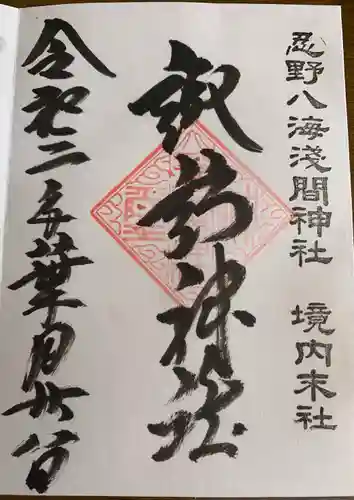 忍野八海淺間神社　境内末社
諏訪神社
令和二年葉月廿日